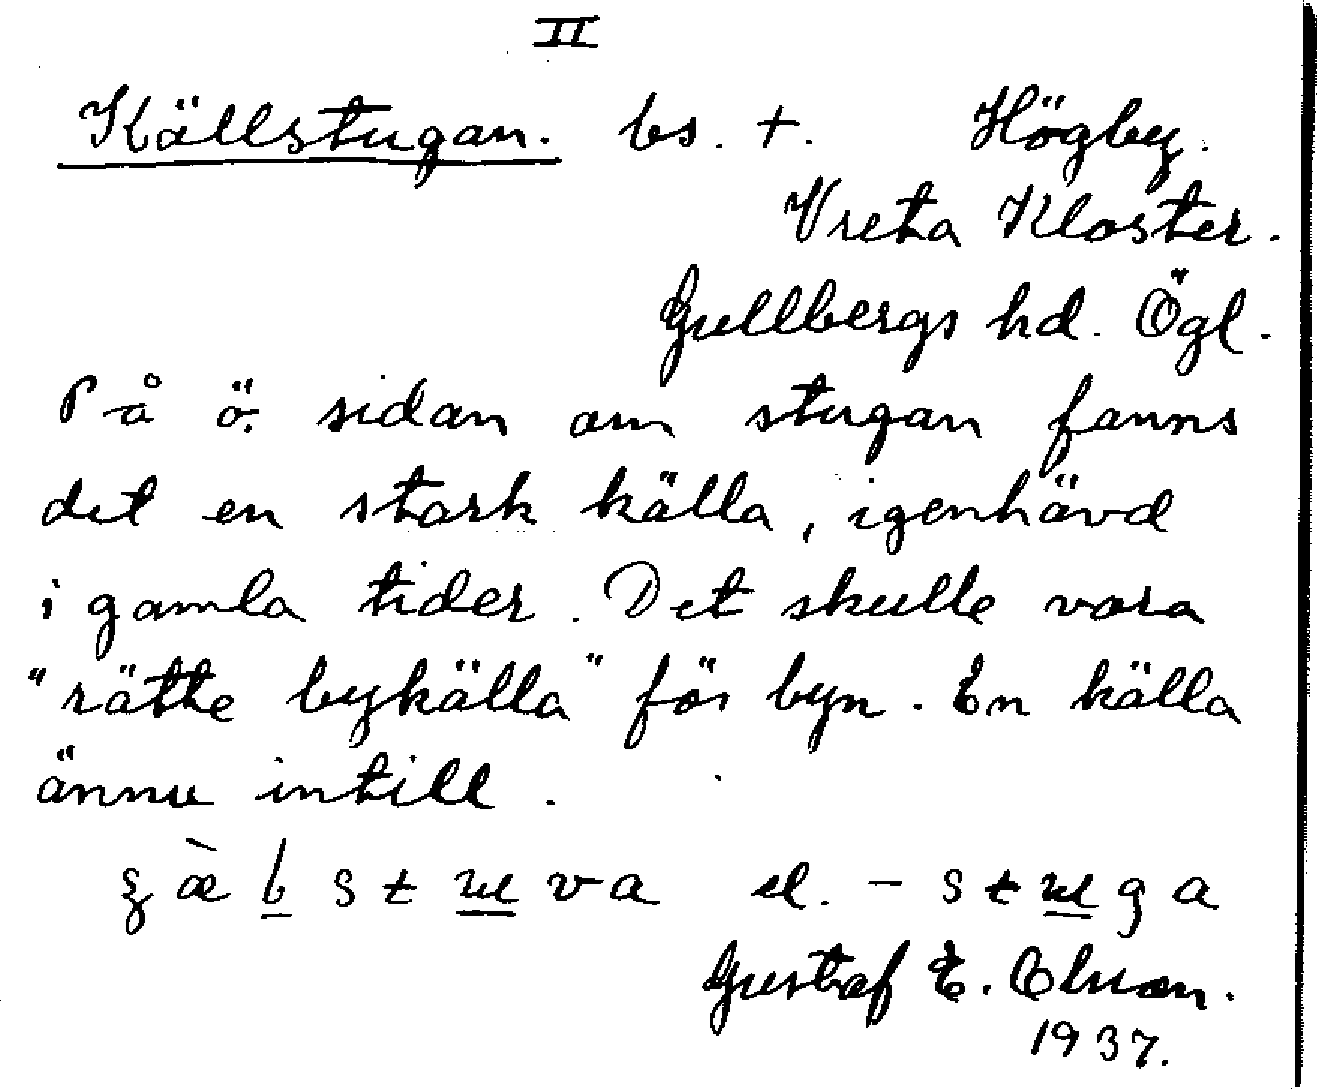 II
Källstugan. bs. +. Högby.
Vreta Kloster.
Gullbergs hd. Ögl.
På ö. sidan om stugan fanns
det en stark källa, igenhävd
i gamla tider. Det skulle vara
"rätte bykälla" för byn. En källa
ännu intill.
el.
Gustaf E.
1937.